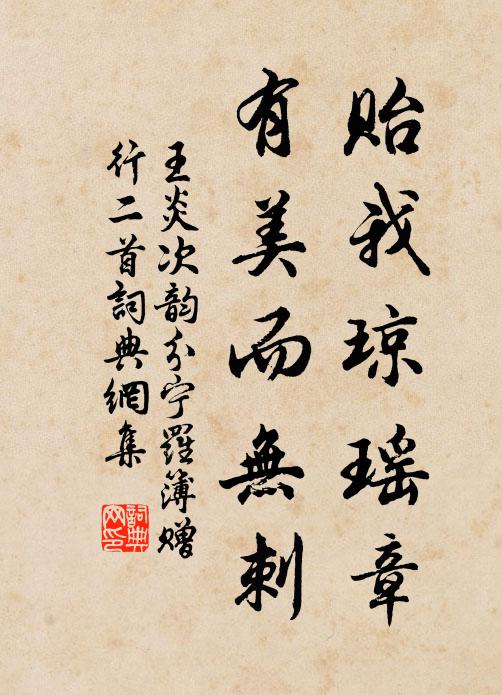 貽我琼瑶章
有美而無刺
王炎次韵分宁羅簿赠
行二首詞典網集
詞典
网印